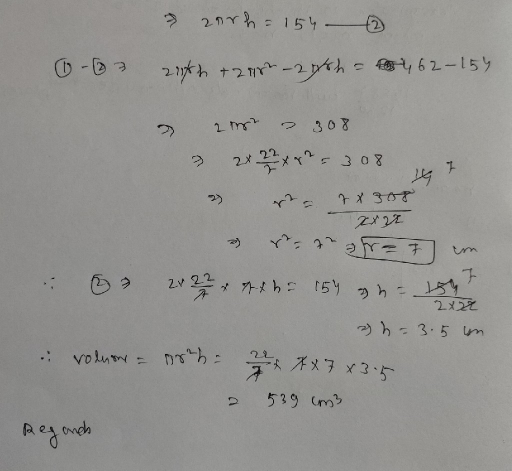 ⇒ 2πrh = 154 — ②
① - ② ⇒ 2πrh + 2πr² - 2πrh = 462 - 154
⇒ 2πr² = 308
⇒ 2 × 22/7 × r² = 308
⇒ r² = 7 × 308 14 7 / 2 × 22
⇒ r² = 7² ⇒ r = 7 cm
∴ ② ⇒ 2 × 22/7 × 7 × h = 154 ⇒ h = 154 7 / 2 × 22
⇒ h = 3.5 cm
∴ volum = πr²h = 22/7 × 7 × 7 × 3.5
= 539 cm³
Regards